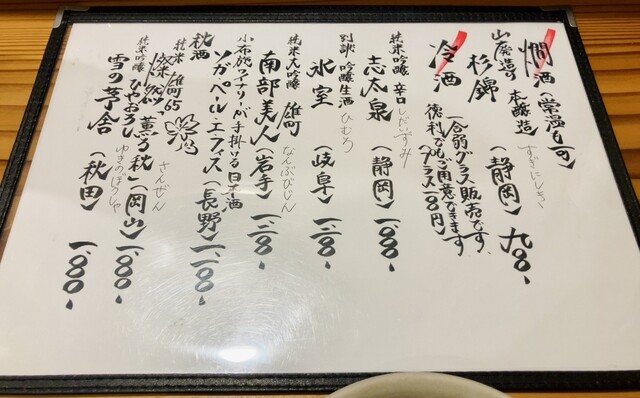 燗酒(常温も可)
山廃造り 本醸造
杉錦 すぎにしき (静岡) 九〇〇、
冷酒 一合弱グラス販売です、
徳利でもご用意できます
(プラス一〇〇円)
純米吟醸 辛口 しだいずみ
志太泉 (静岡) 一、〇〇〇、
別誂 吟醸生酒 ひむろ
氷室 (岐阜) 一、二〇〇、
純米大吟醸 雄町 なんぶびじん
南部美人 (岩手) 一、三〇〇、
小布施ワイナリーが手掛ける日本酒
ソガペール・エ・フィス (長野) 一、一〇〇、
秋酒
純米 雄町65 さんぜん
燦然 「薫う秋」 (岡山) 一、〇〇〇、
純米吟醸 ひやおろし ゆきのぼうしゃ
雪の茅舎 (秋田) 一、〇〇〇、